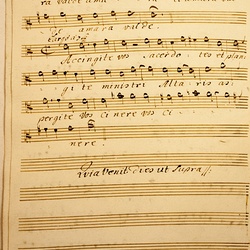 ra valde ama
amara valde.
Accingite vos Sacerdotes et plan
gite ministri Altaris as
pergite vos Cinere vos Ci
nere.
Quia venit dies ut Supra